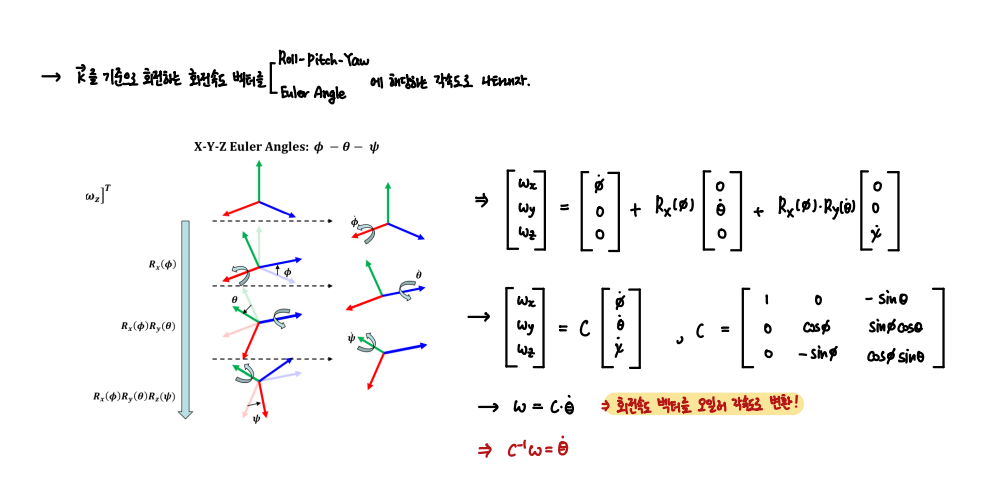 → k⃗를 기준으로 회전하는 회전속도 벡터를 [ Roll-Pitch-Yaw
Euler Angle 에 해당하는 각속도로 나타내자.
X-Y-Z Euler Angles: ϕ − θ − ψ
ω_z]^T
R_x(ϕ)
R_x(ϕ)R_y(θ)
R_x(ϕ)R_y(θ)R_z(ψ)
ϕ
θ
ψ
ϕ̇
θ̇
ψ̇
⇒ [ωx ωy ωz] = [ϕ̇ 0 0] + Rx(ϕ) [0 θ̇ 0] + Rx(ϕ)·Ry(θ̇) [0 0 χ̇]
→ [ωx ωy ωz] = C [ϕ̇ θ̇ χ̇] , C = [1 0 -sinθ
0 cosϕ sinϕcosθ
0 -sinϕ cosϕsinθ]
→ ω = C·θ̇ ⇒ 회전속도 벡터를 오일러 각속도로 변환!
⇒ C⁻¹ω = θ̇